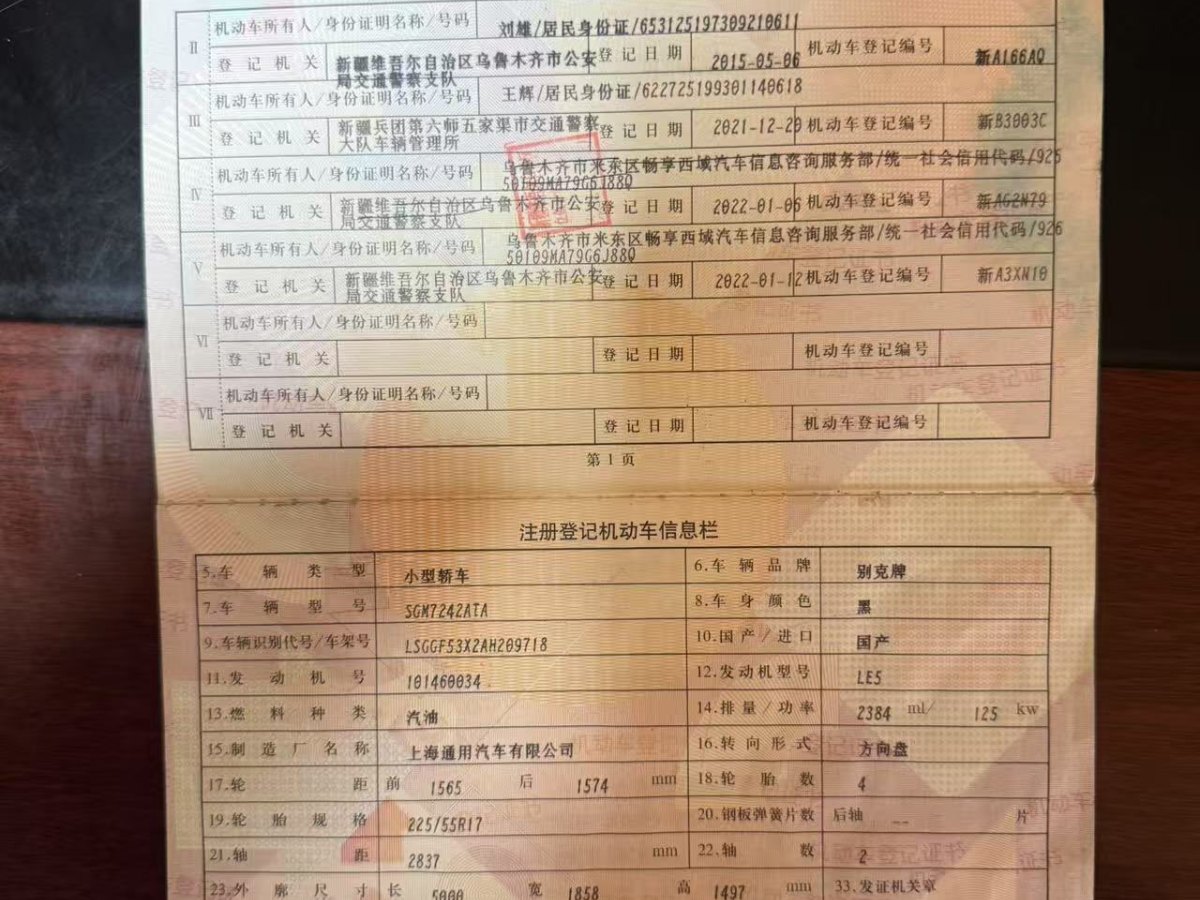 II 机动车所有人/身份证明名称/号码 刘雄/居民身份证/653125197309210611
登记机关 新疆维吾尔自治区乌鲁木齐市公安局交通警察支队 登记日期 2015-05-06 机动车登记编号 新A166AQ
III 机动车所有人/身份证明名称/号码 王辉/居民身份证/622725199301140618
登记机关 新疆兵团第六师五家渠市交通警察大队车辆管理所 登记日期 2021-12-20 机动车登记编号 新B3003C
IV 机动车所有人/身份证明名称/号码 乌鲁木齐市米东区畅享西域汽车信息咨询服务部/统一社会信用代码/92650109MA79G6J88Q
登记机关 新疆维吾尔自治区乌鲁木齐市公安局交通警察支队 登记日期 2022-01-06 机动车登记编号 新AG2N79
V 机动车所有人/身份证明名称/号码 乌鲁木齐市米东区畅享西域汽车信息咨询服务部/统一社会信用代码/92650109MA79G6J88Q
登记机关 新疆维吾尔自治区乌鲁木齐市公安局交通警察支队 登记日期 2022-01-12 机动车登记编号 新A3XN10
VI 机动车所有人/身份证明名称/号码
登记机关 登记日期 机动车登记编号
VII 机动车所有人/身份证明名称/号码
登记机关 登记日期 机动车登记编号
第1页
注册登记机动车信息栏
5.车辆类型 小型轿车 6.车辆品牌 别克牌
7.车辆型号 SGM7242ATA 8.车身颜色 黑
9.车辆识别代号/车架号 LSGGF53X2AH209718 10.国产/进口 国产
11.发动机号 101460034 12.发动机型号 LE5
13.燃料种类 汽油 14.排量/功率 2384 ml/ 125 kw
15.制造厂名称 上海通用汽车有限公司 16.转向形式 方向盘
17.轮距 前 1565 后 1574 mm 18.轮胎数 4
19.轮胎规格 225/55R17 20.钢板弹簧片数 后轴 -- 片
21.轴距 2837 mm 22.轴数 2
23.外廓尺寸 长 5000 宽 1858 高 1497 mm 33.发证机关章